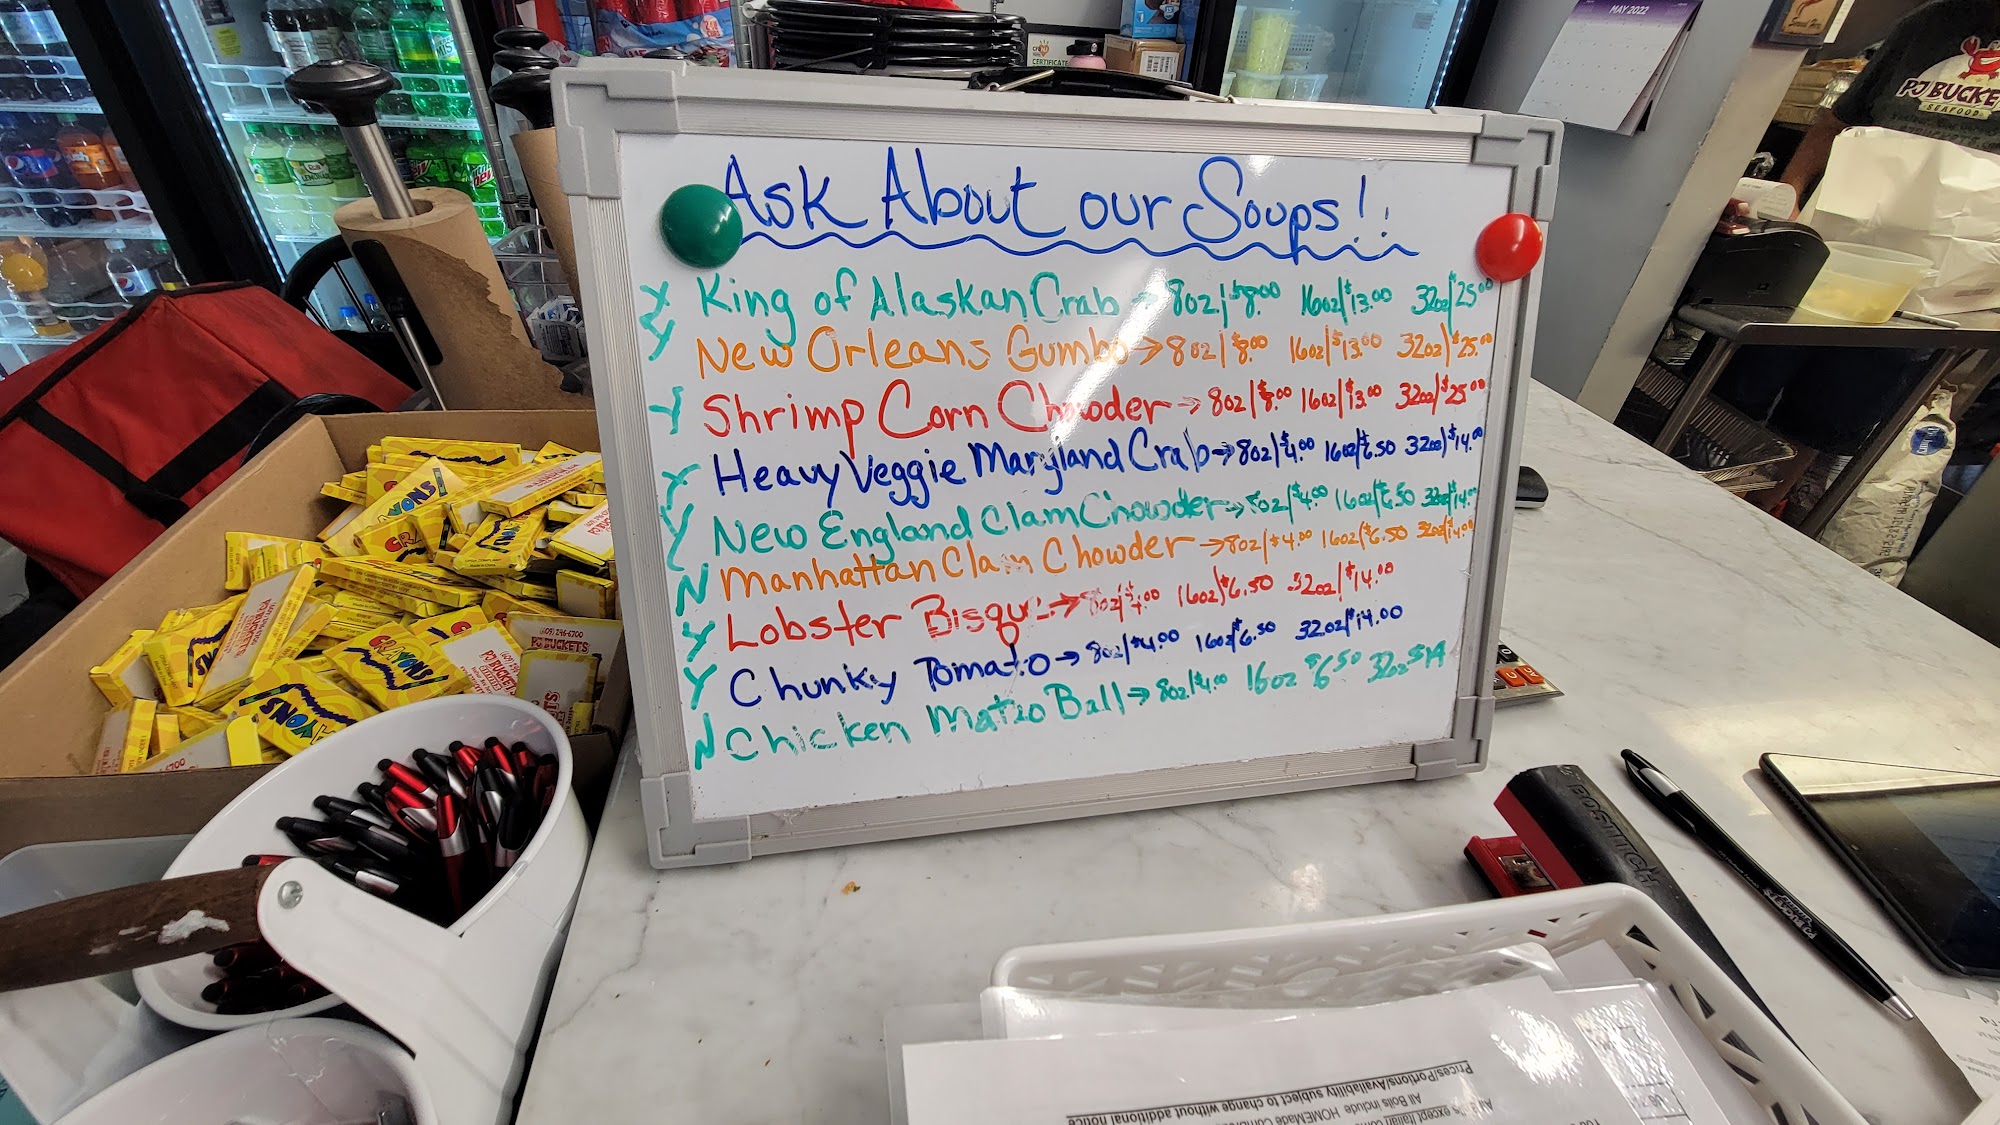 MAY 2022
CERTIFICATE
PJ BUCKE
SEAFOOD
Ask About our Soups!!
Y King of Alaskan Crab → 8oz/$8.00 16oz/$13.00 32oz/$25.00
Y New Orleans Gumbo → 8oz/$8.00 16oz/$13.00 32oz/$25.00
Y Shrimp Corn Chowder → 8oz/$8.00 16oz/$13.00 32oz/$25.00
Y Heavy Veggie Maryland Crab → 8oz/$4.00 16oz/$6.50 32oz/$14.00
Y New England Clam Chowder → 8oz/$4.00 16oz/$6.50 32oz/$14.00
N Manhattan Clam Chowder → 8oz/$4.00 16oz/$6.50 32oz/$14.00
Y Lobster Bisque → 8oz/$4.00 16oz/$6.50 32oz/$14.00
Y Chunky Tomato → 8oz/$4.00 16oz/$6.50 32oz/$14.00
N Chicken Matzo Ball → 8oz/$4.00 16oz $6.50 32oz $14
CRAYONS
CRAYONS
(609) 246-6700
PJ BUCKETS
BOSTITCH
PJ BUCKETS
Prices/Portions/Availability subject to change without additional notice
All Boils include HOMEMade